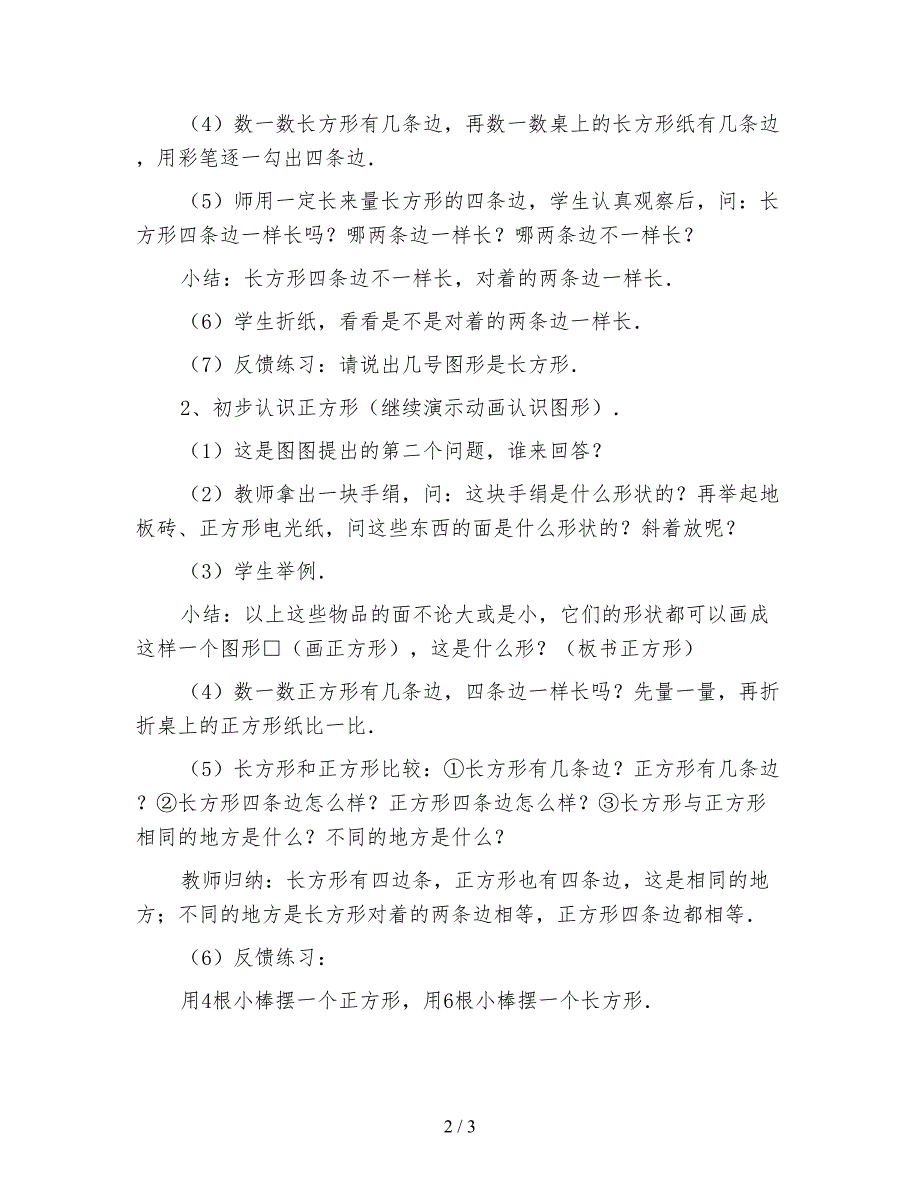 （4）数一数长方形有几条边，再数一数桌上的长方形纸有几条边
，用彩笔逐一勾出四条边．
（5）师用一定长来量长方形的四条边，学生认真观察后，问：长
方形四条边一样长吗？哪两条边一样长？哪两条边不一样长？
小结：长方形四条边不一样长，对着的两条边一样长．
（6）学生折纸，看看是不是对着的两条边一样长．
（7）反馈练习：请说出几号图形是长方形．
2、初步认识正方形（继续演示动画认识图形）．
（1）这是图图提出的第二个问题，谁来回答？
（2）教师拿出一块手绢，问：这块手绢是什么形状的？再举起地
板砖、正方形电光纸，问这些东西的面是什么形状的？斜着放呢？
（3）学生举例．
小结：以上这些物品的面不论大或是小，它们的形状都可以画成
这样一个图形□（画正方形），这是什么形？（板书正方形）
（4）数一数正方形有几条边，四条边一样长吗？先量一量，再折
折桌上的正方形纸比一比．
（5）长方形和正方形比较：①长方形有几条边？正方形有几条边
？②长方形四条边怎么样？正方形四条边怎么样？③长方形与正方形
相同的地方是什么？不同的地方是什么？
教师归纳：长方形有四边条，正方形也有四条边，这是相同的地
方；不同的地方是长方形对着的两条边相等，正方形四条边都相等．
（6）反馈练习：
用4根小棒摆一个正方形，用6根小棒摆一个长方形．
2 / 3